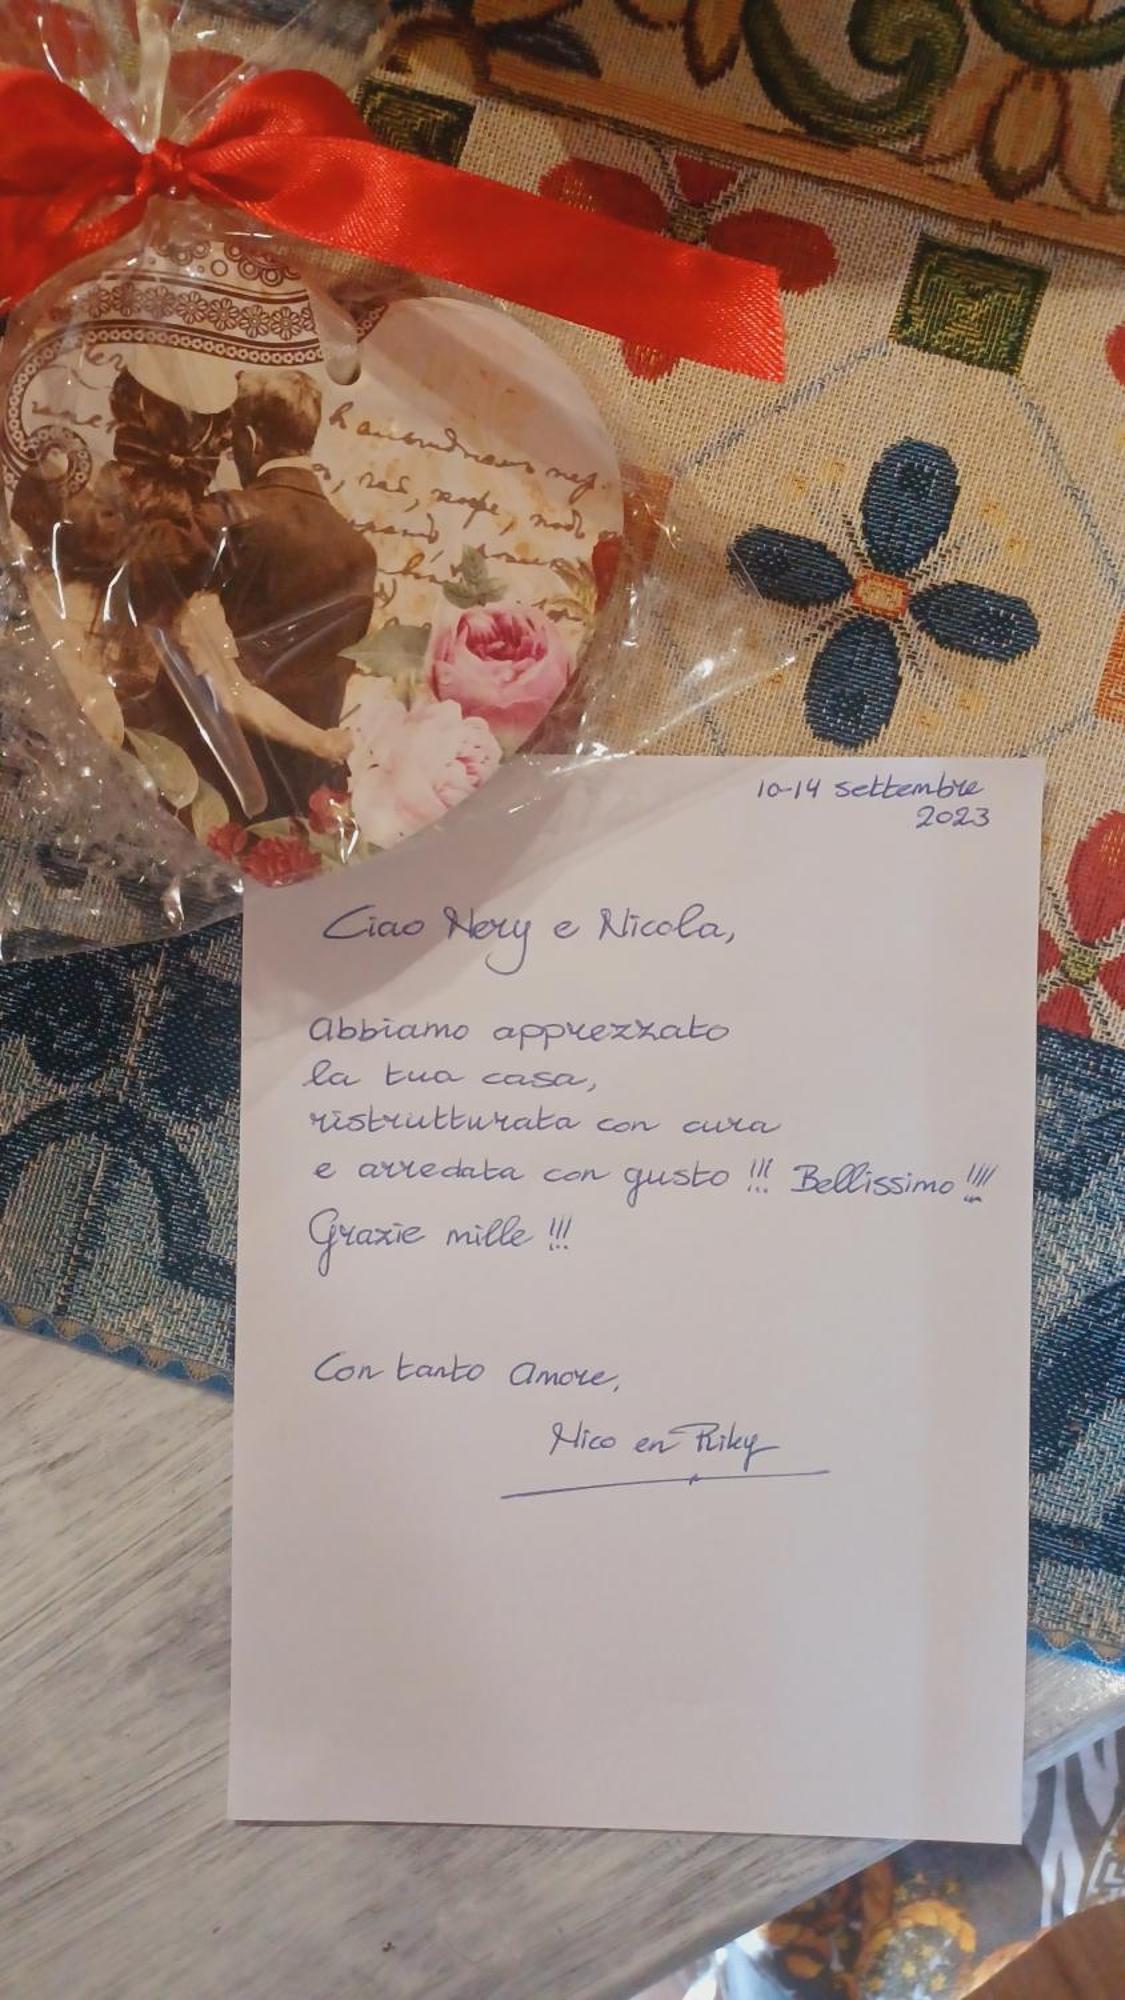 10-14 settembre
2023
Ciao Nery e Nicola,
Abbiamo apprezzato
la tua casa,
ristrutturata con cura
e arredata con gusto !!! Bellissimo !!!!
Grazie mille !!!
Con tanto Amore,
Nico en Riky